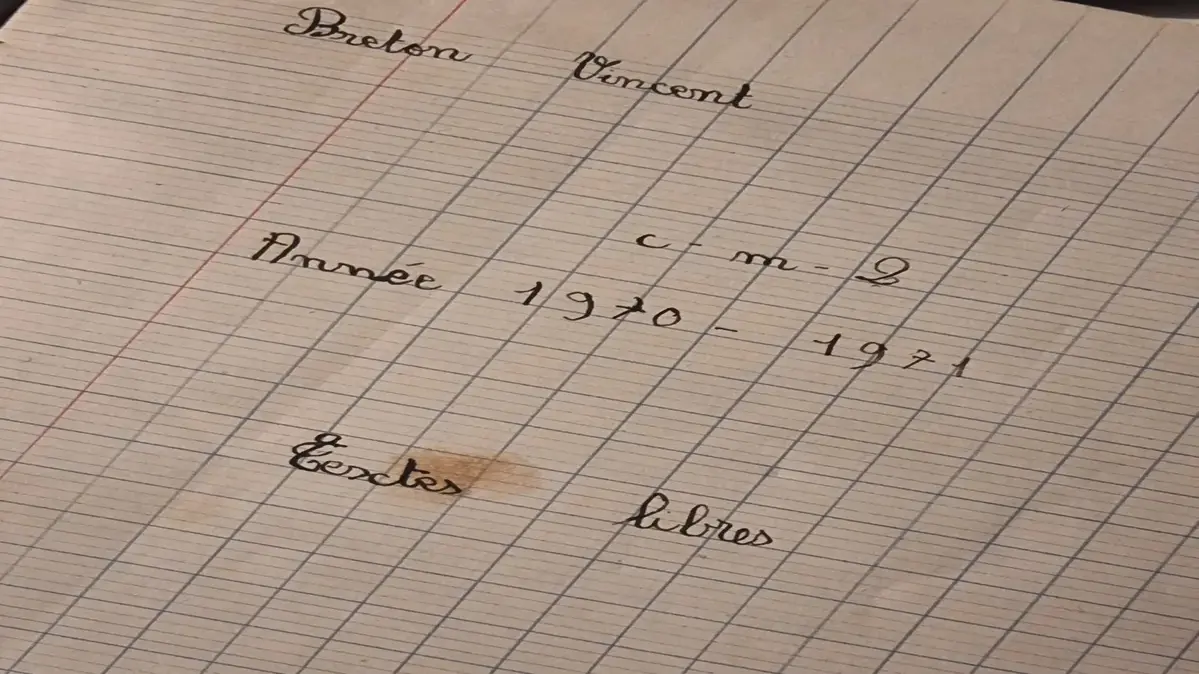 Breton Vincent
c - m - 2
Année 1970 - 1971
Textes libres